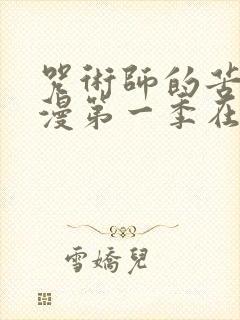 咒術師的苦
漫第一季在
雪嬌兒